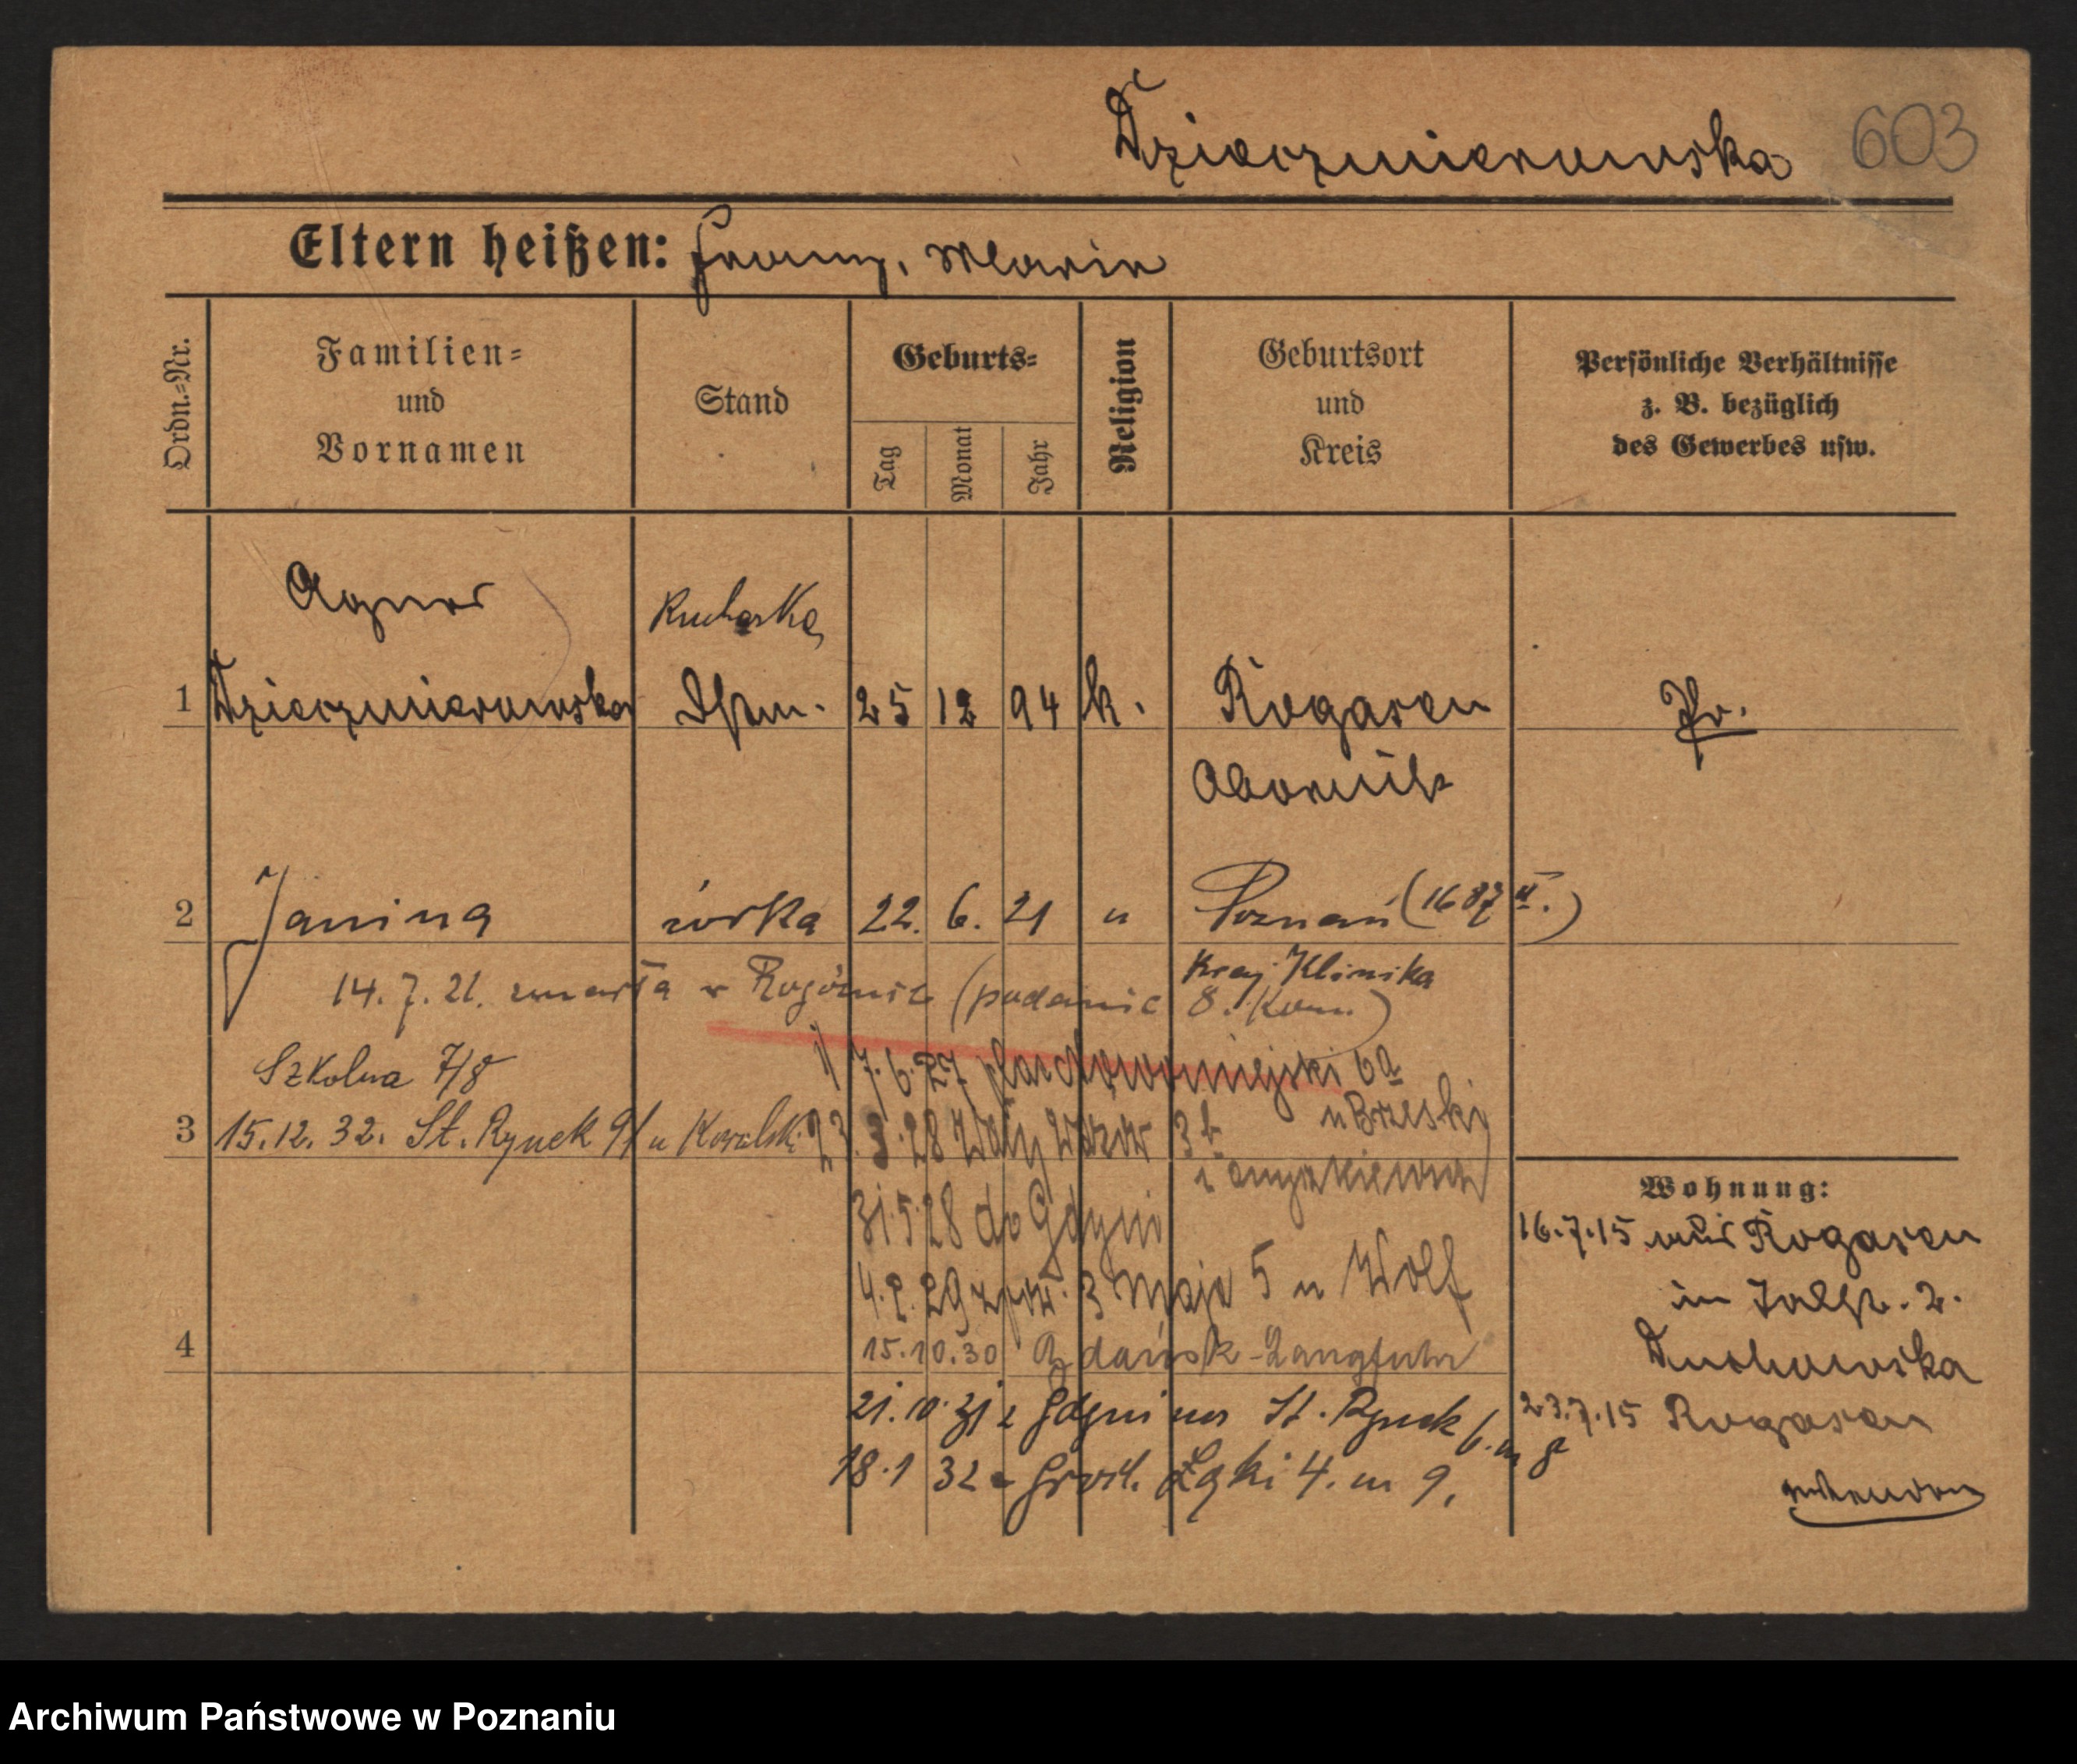 Dzieczmierowska 603
Eltern heißen: Franz, Maria
Ordn.=Nr.
Familien=
und
Vornamen
Stand
Geburts=
Tag
Monat
Jahr
Religion
Geburtsort
und
Kreis
Persönliche Verhältnisse
z. B. bezüglich
des Gewerbes usw.
Agnes
Kucharka
1 Dzieczmierowska 25 12 94 k. Rogasen Pr.
Obornik
2 Janina córka 22. 6. 21 " Poznań (1687 II.)
Kraj. Klinika
14. 7. 21. zmarła w Rogoźnie (podanie 8. Kom.)
Szkolna 7/8
1/7. 6. 27 plac Nowomiejski 6a
u Brzeski
3 15. 12. 32. St. Rynek 91 u Kowalski
23. 3. 28 Wały Wazów 3
31. 5. 28 do Gdyni
4. 2. 29 z pow. 3 Maja 5 u Wolf
4
15. 10. 30 Gdańsk-Langfuhr
21. 10. 31 z Gdyni na St. Rynek 6. m 8
18. 1 32 Grobl. Łąki 4. m 9.
Wohnung:
16. 7. 15 aus Rogasen
in 2.
Duchowska
23. 7. 15 Rogasen